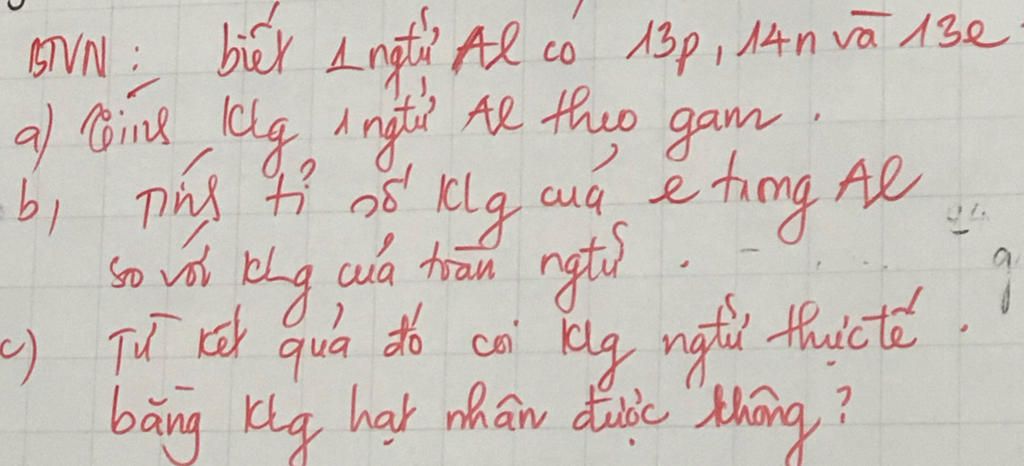 BTVN : biết 1 ngtử Al có 13p, 14n và 13e
a) Tính klg 1 ngtử Al theo gam .
b, Tính tỉ số klg của e trong Al
so với klg của toàn ngtử .
c) Từ kết quả đó coi klg ngtử thực tế .
bằng klg hạt nhân được không ?